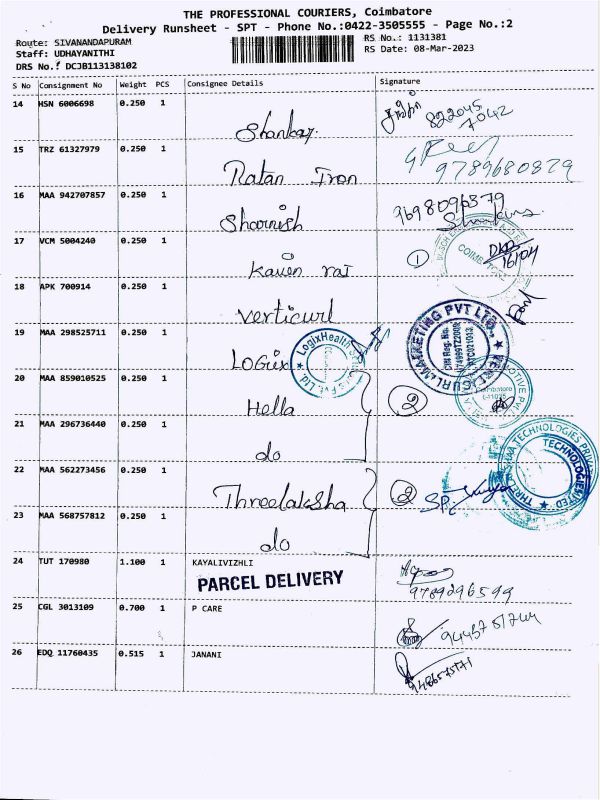 THE PROFESSIONAL COURIERS, Coimbatore
Delivery Runsheet - SPT - Phone No.:0422-3505555 - Page No.:2
Route: SIVANANDAPURAM
RS No.: 1131381
Staff: UDHAYANITHI
RS Date: 08-Mar-2023
DRS No.: DCJB113138102
S No Consignment No Weight PCS Consignee Details Signature
14 HSN 6006698 0.250 1 Shankar. 822045 7042
15 TRZ 61327979 0.250 1 Ratan Iron 9789680829
16 MAA 942707857 0.250 1 Shoornish 9698096379
17 VCM 5004240 0.250 1 Kavin raj 1
18 APK 700914 0.250 1 Verticurl
19 MAA 298525711 0.250 1 LOGix LogixHealth
20 MAA 859010525 0.250 1 Hella 2
21 MAA 296736440 0.250 1 do
22 MAA 562273456 0.250 1 Threelaksha 2
23 MAA 568757812 0.250 1 do
24 TUT 170980 1.100 1 KAYALIVIZHLI
PARCEL DELIVERY 9789296599
25 CGL 3013109 0.700 1 P CARE
26 EDQ 11760435 0.515 1 JANANI